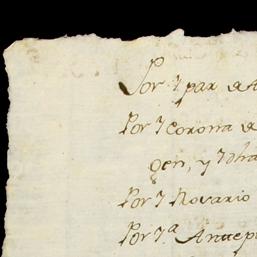 Por 1 par de
Por 1 Corona de
Gen, y 1 dha
Por 1 Rosario
Por 1.ª Antep